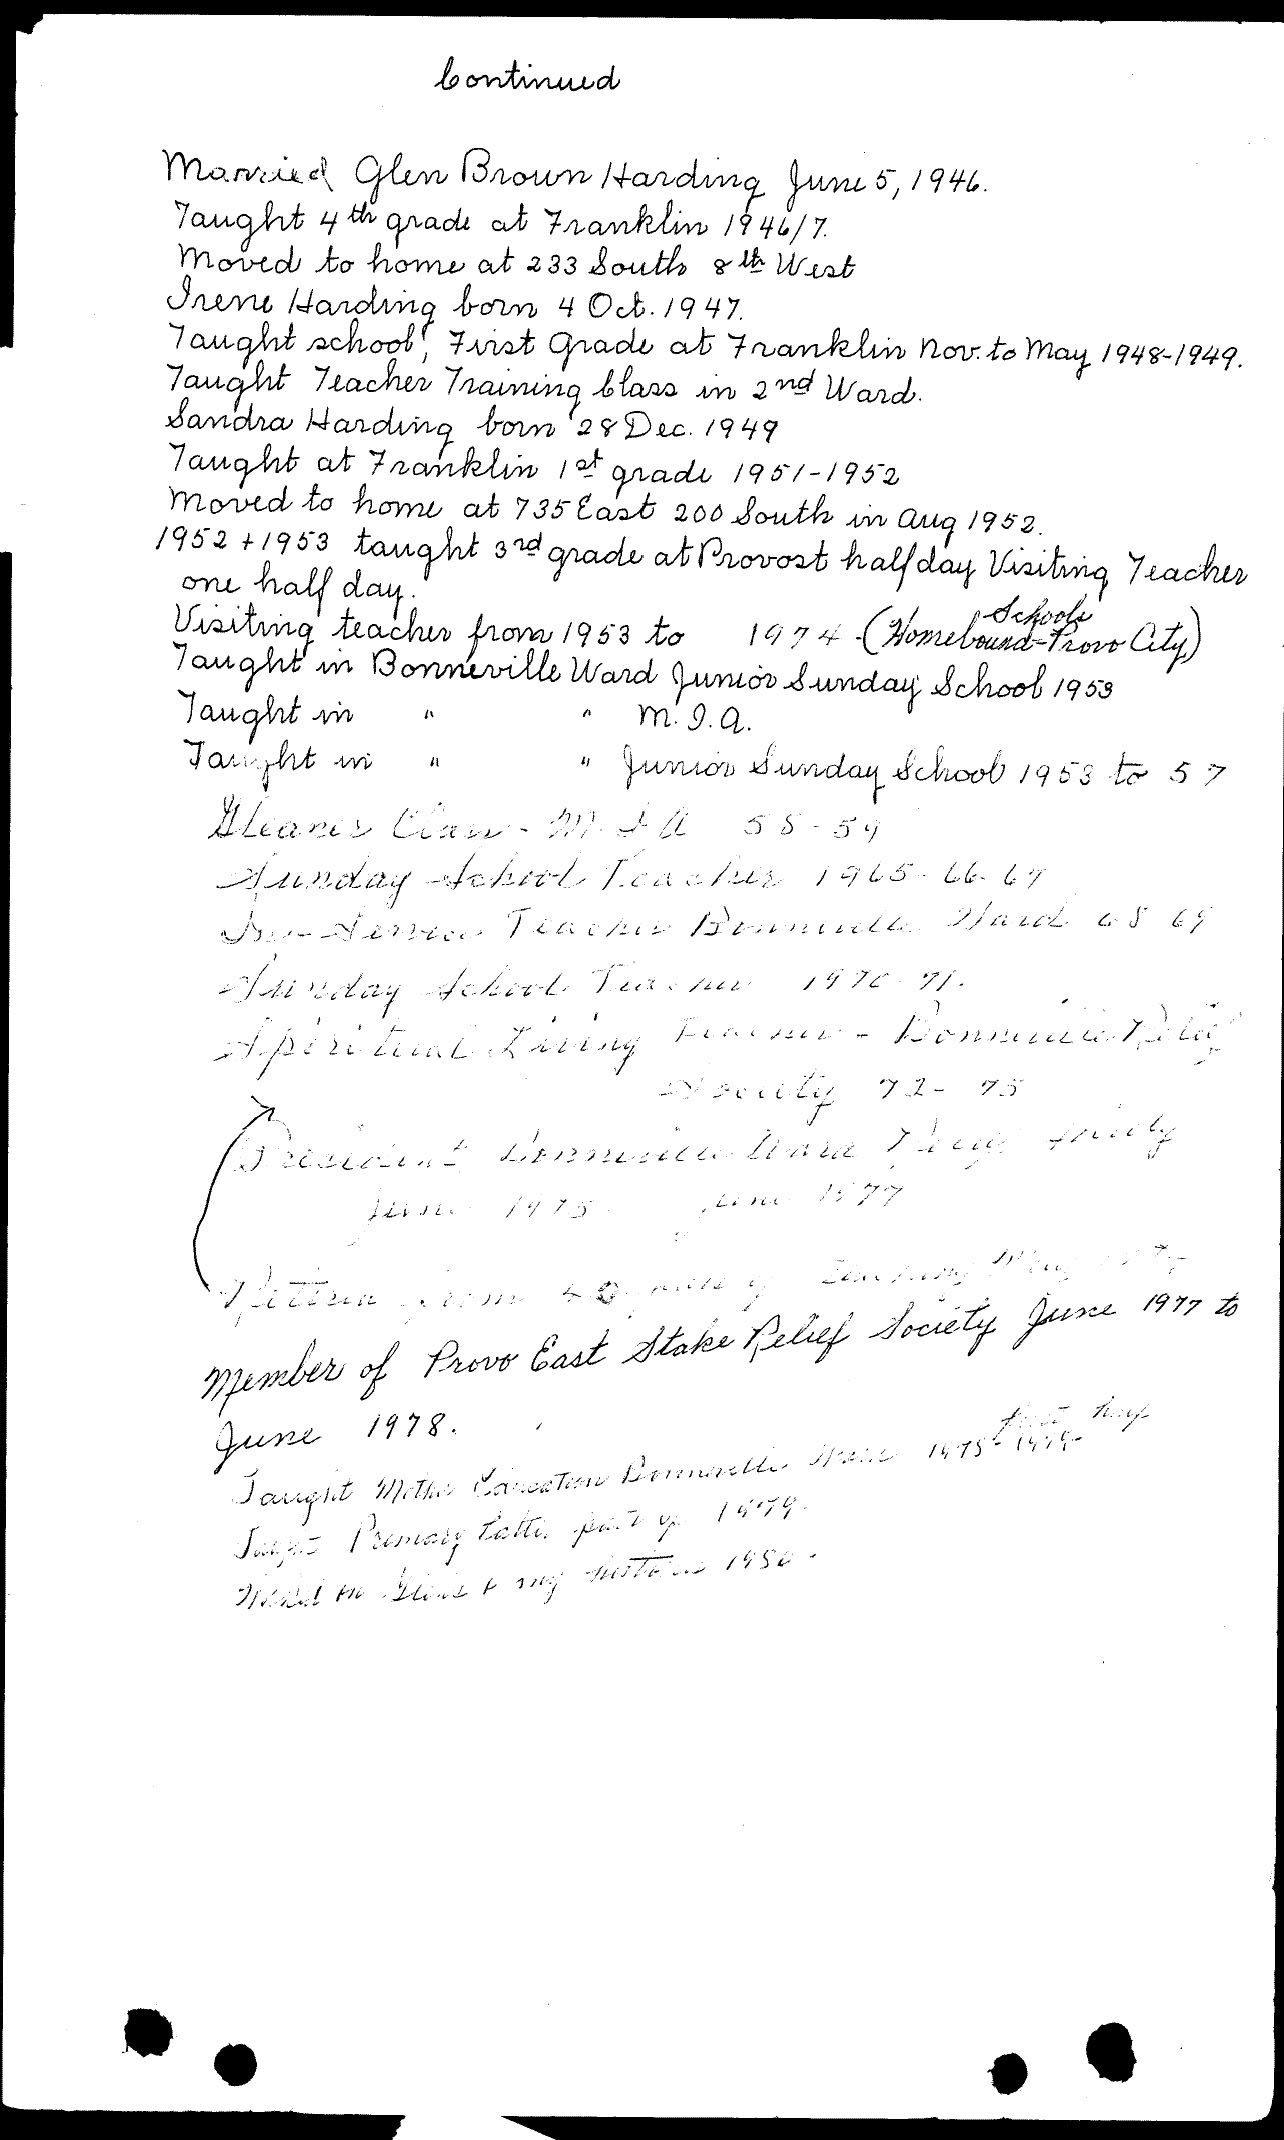 Continued
Married Glen Brown Harding June 5, 1946.
Taught 4th grade at Franklin 1946/7.
Moved to home at 233 South 8th West
Irene Harding born 4 Oct. 1947.
Taught school, First Grade at Franklin Nov. to May 1948-1949.
Taught Teacher Training Class in 2nd Ward.
Sandra Harding born 28 Dec. 1949
Taught at Franklin 1st grade 1951-1952
Moved to home at 735 East 200 South in Aug 1952.
1952 + 1953 taught 3rd grade at Provost half day Visiting Teacher
one half day.
Schools
Visiting teacher from 1953 to 1974 - (Homebound - Provo City)
Taught in Bonneville Ward Junior Sunday School 1953
Taught in " " M.I.A.
Taught in " " Junior Sunday School 1953 to 57
Gleaner Class - M I A 58-59
Sunday School Teacher 1965-66-67
In-Service Teacher Bonneville Ward 68 69
Sunday School Teacher 1970-71.
Spiritual Living Teacher - Bonneville Relief
Society 72-75
President Bonneville Ward Relief Society
June 1975 June 1977
from 40 years of teaching May
Member of Provo East Stake Relief Society June 1977 to
June 1978.
first half
Taught Mother Education Bonneville Ward 1978-1979-
Taught Primary latter part of 1979.
Worked on Glen's & my histories 1980.